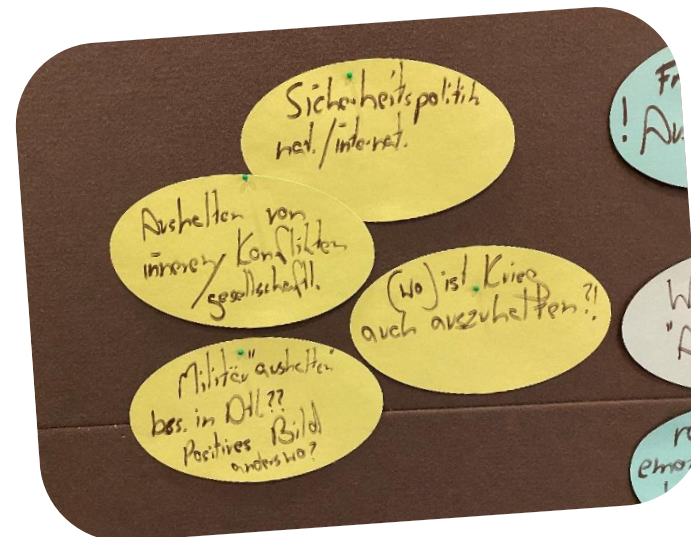 Sicherheitspolitik
nat./internat.
Aushalten von
inneren/Konflikten
gesellschaftl.
(Wo) ist Krieg
auch auszuhalten?!
Militär "aushalten"
bes. in Dtl.??
Positives Bild
anderswo?
!